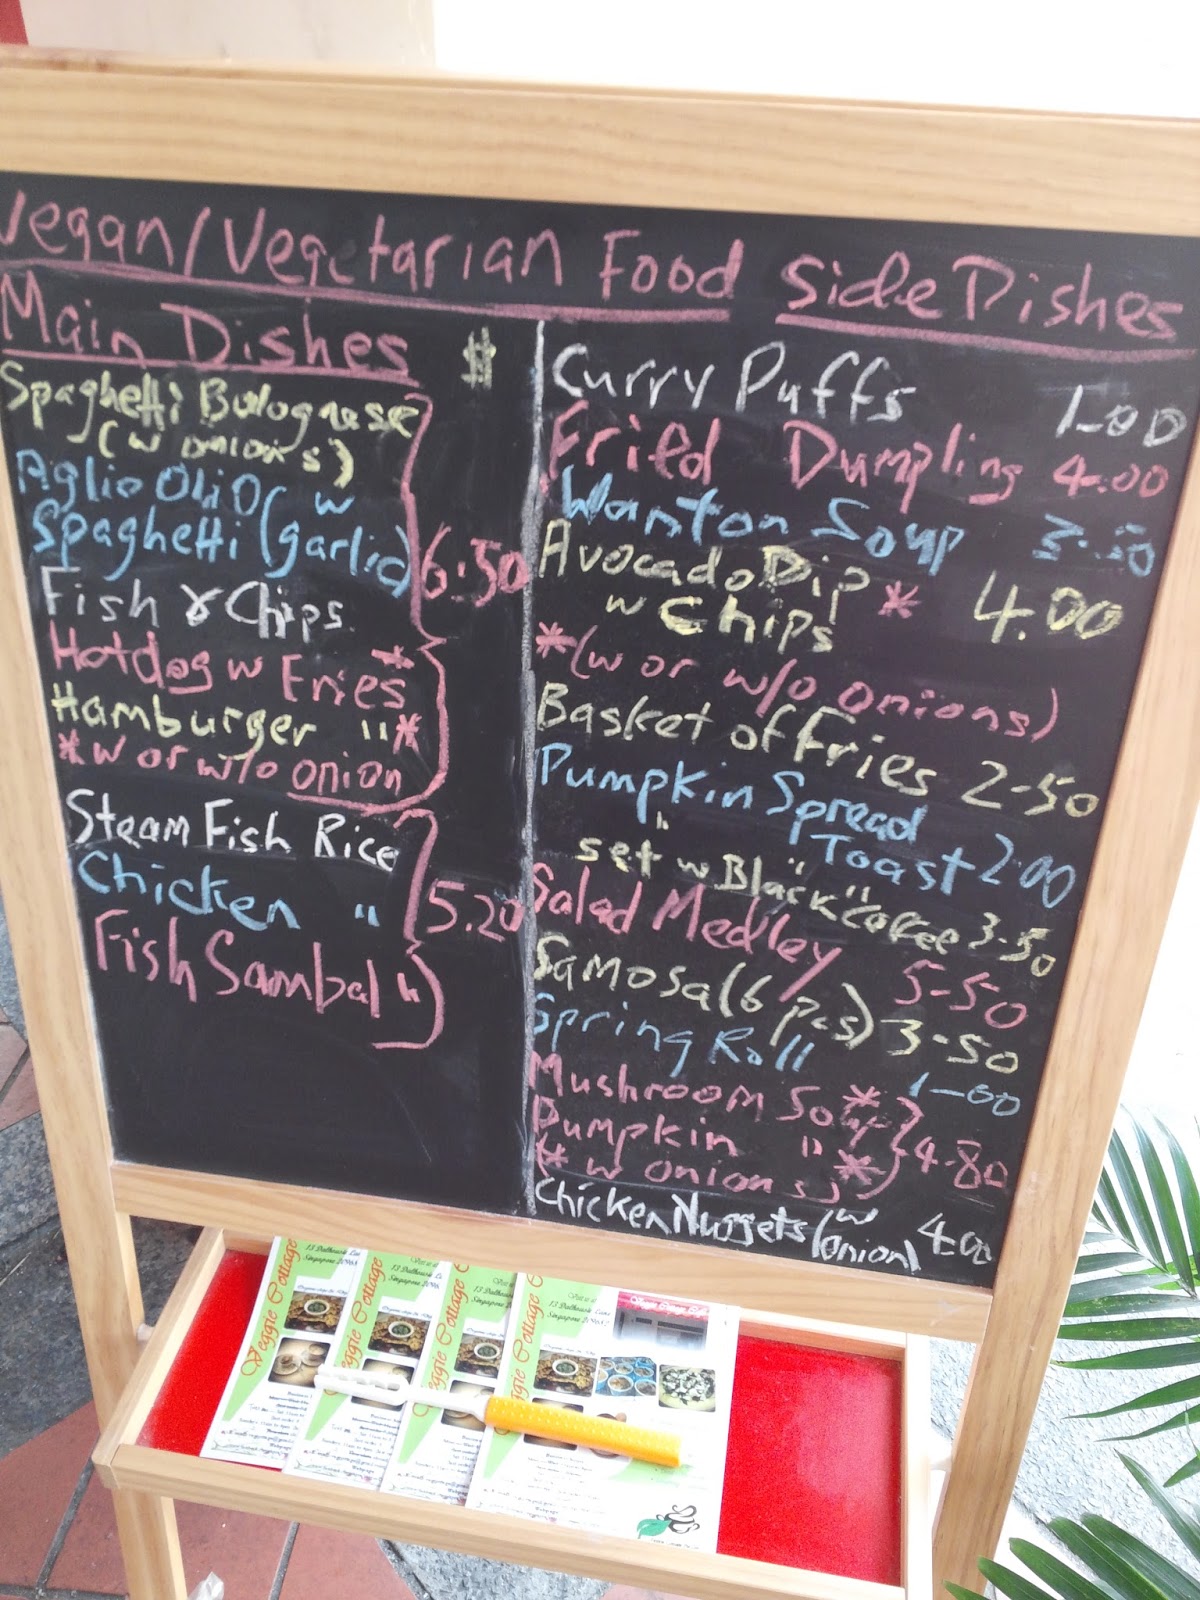 Vegan/Vegetarian Food
Main Dishes $
Spaghetti Bolognese
(w onions)
Aglio Olio (w
Spaghetti (garlic)
Fish & Chips
6.50
Hotdog w Fries*
Hamburger "*
*w or w/o onion
Steam Fish Rice
Chicken "
5.20
Fish Sambal "
Side Dishes
Curry Puffs 1-00
Fried Dumpling 4.00
Wanton Soup 3.50
Avocado Dip
w Chips * 4.00
*(w or w/o onions)
Basket of Fries 2-50
Pumpkin Spread
Toast 2.00
" set w Black "Coffee 3-50
Salad Medley 5-50
Samosa (6 pcs) 3-50
Spring Roll 1-00
Mushroom Soup*
Pumpkin "*
4-80
(* w onions)
Chicken Nuggets (w
onion) 4.00
Veggie Cottage
13 Dalhousie Lane